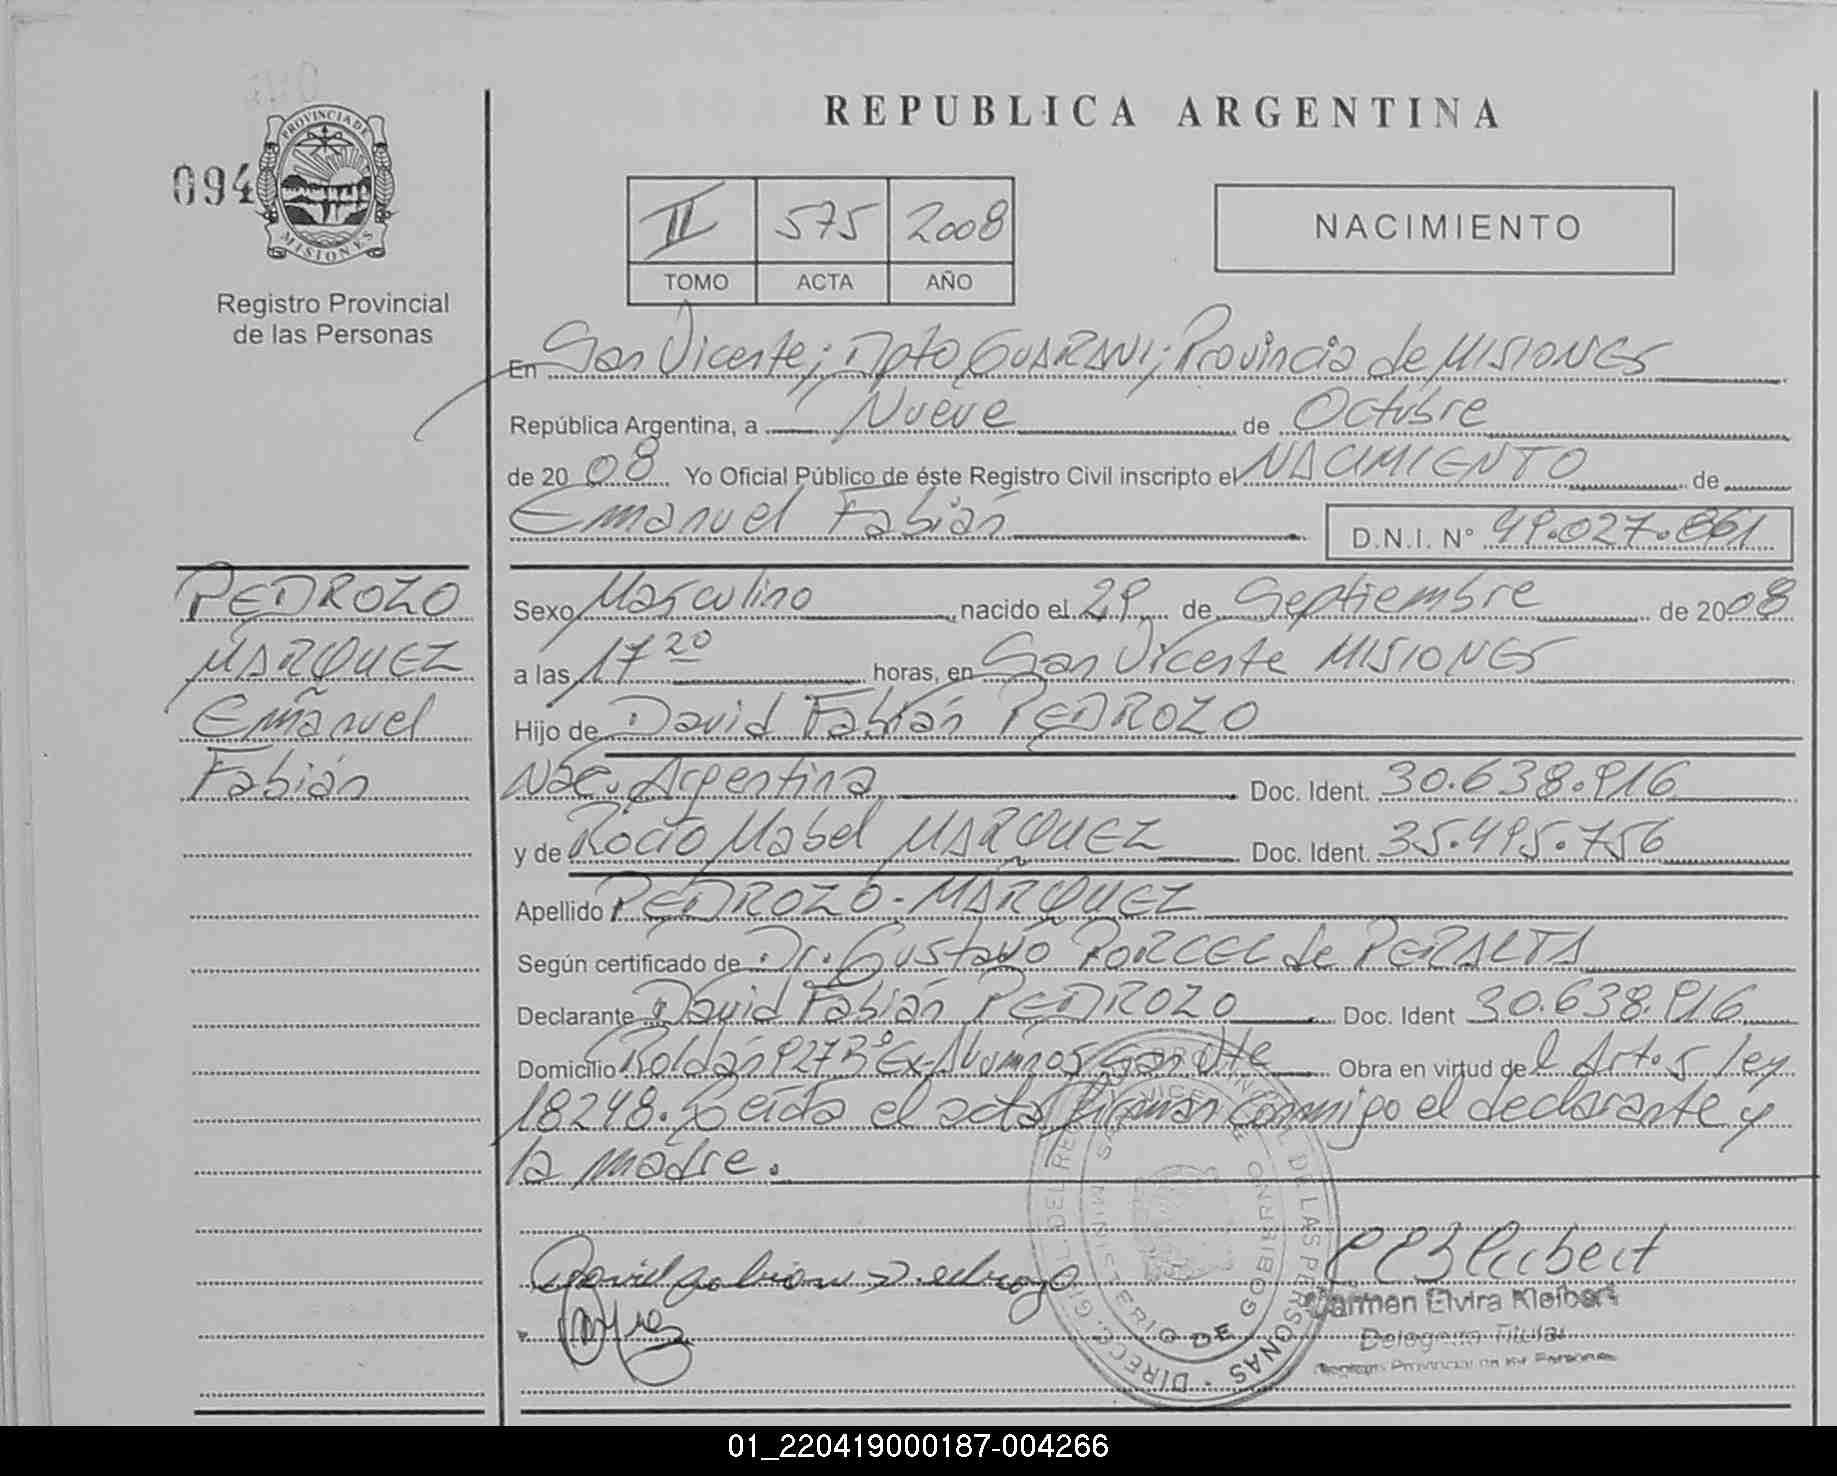 REPUBLICA ARGENTINA
094
PROVINCIA DE
MISIONES
Registro Provincial
de las Personas
II 575 2008
TOMO ACTA AÑO
NACIMIENTO
En San Vicente; Dpto GUARANI; Provincia de MISIONES
República Argentina, a Nueve de Octubre
de 2008 Yo Oficial Público de éste Registro Civil inscripto el NACIMIENTO de
Emanuel Fabián
D.N.I. N° 49.027.861
PEDROZO
MARQUEZ
Emanuel
Fabián
Sexo Masculino nacido el 29 de Septiembre de 2008
a las 17 20 horas, en San Vicente MISIONES
Hijo de David Fabián PEDROZO
Nac. Argentina Doc. Ident. 30.638.916
y de Rocío Mabel MARQUEZ Doc. Ident. 35.495.756
Apellido PEDROZO - MARQUEZ
Según certificado de Dr. Gustavo PORCEL de PERALTA
Declarante David Fabián PEDROZO Doc. Ident 30.638.916
Domicilio Roldán 927 B° Ex-Alumnos San Vte Obra en virtud del Art. 5 ley
18248. Leída el acta firman conmigo el declarante y
la madre.
DIRECC. GRL. DEL REG. PROVINCIAL DE LAS PERSONAS
MINISTERIO DE GOBIERNO
SAN VICENTE
Carmen Elvira Kleibert
Delegada Titular
Registro Provincial de las Personas
01_220419000187-004266